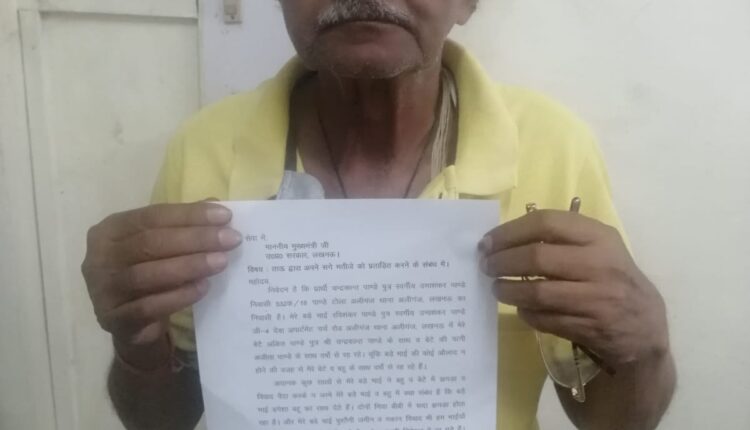 सेवा में,
माननीय मुख्यमंत्री जी
उ०प्र० सरकार, लखनऊ।
विषय : ताऊ द्वारा अपने सगे भतीजे को प्रताड़ित करने के संबंध में।
महोदय,
निवेदन है कि प्रार्थी चन्द्रकान्त पाण्डे पुत्र स्वर्गीय उमाशंकर पाण्डे
निवासी 532क/16 पाण्डे टोला अलीगंज थाना अलीगंज, लखनऊ का
निवासी है। मेरे बड़े भाई रविशंकर पाण्डे पुत्र स्वर्गीय उमाशंकर पाण्डे
जी-4 देवा अपार्टमेंट पार्क रोड अलीगंज थाना अलीगंज, लखनऊ में मेरे
बेटे अंकित पाण्डे पुत्र श्री चन्द्रकान्त पाण्डे के साथ व बेटे की पत्नी
अजीता पाण्डे के साथ वर्षों से रह रहे। चूंकि बड़े भाई की कोई औलाद न
होने की वजह से मेरे बेटे व बहू के साथ वर्षों से रह रहे हैं।
अचानक कुछ सालों से मेरे बड़े भाई ने बहू व बेटे में झगड़ा व
विवाद पैदा करके व जन्मे मेरे बड़े भाई व बहू में क्या संबंध है कि बड़े
भाई हमेशा बहू का साथ देते हैं। दोनों मियां बीबी में सदा झगड़ा होता
रहा है। और मेरे बड़े भाई पुश्तैनी जमीन व मकान विवाद भी हम भाईयों